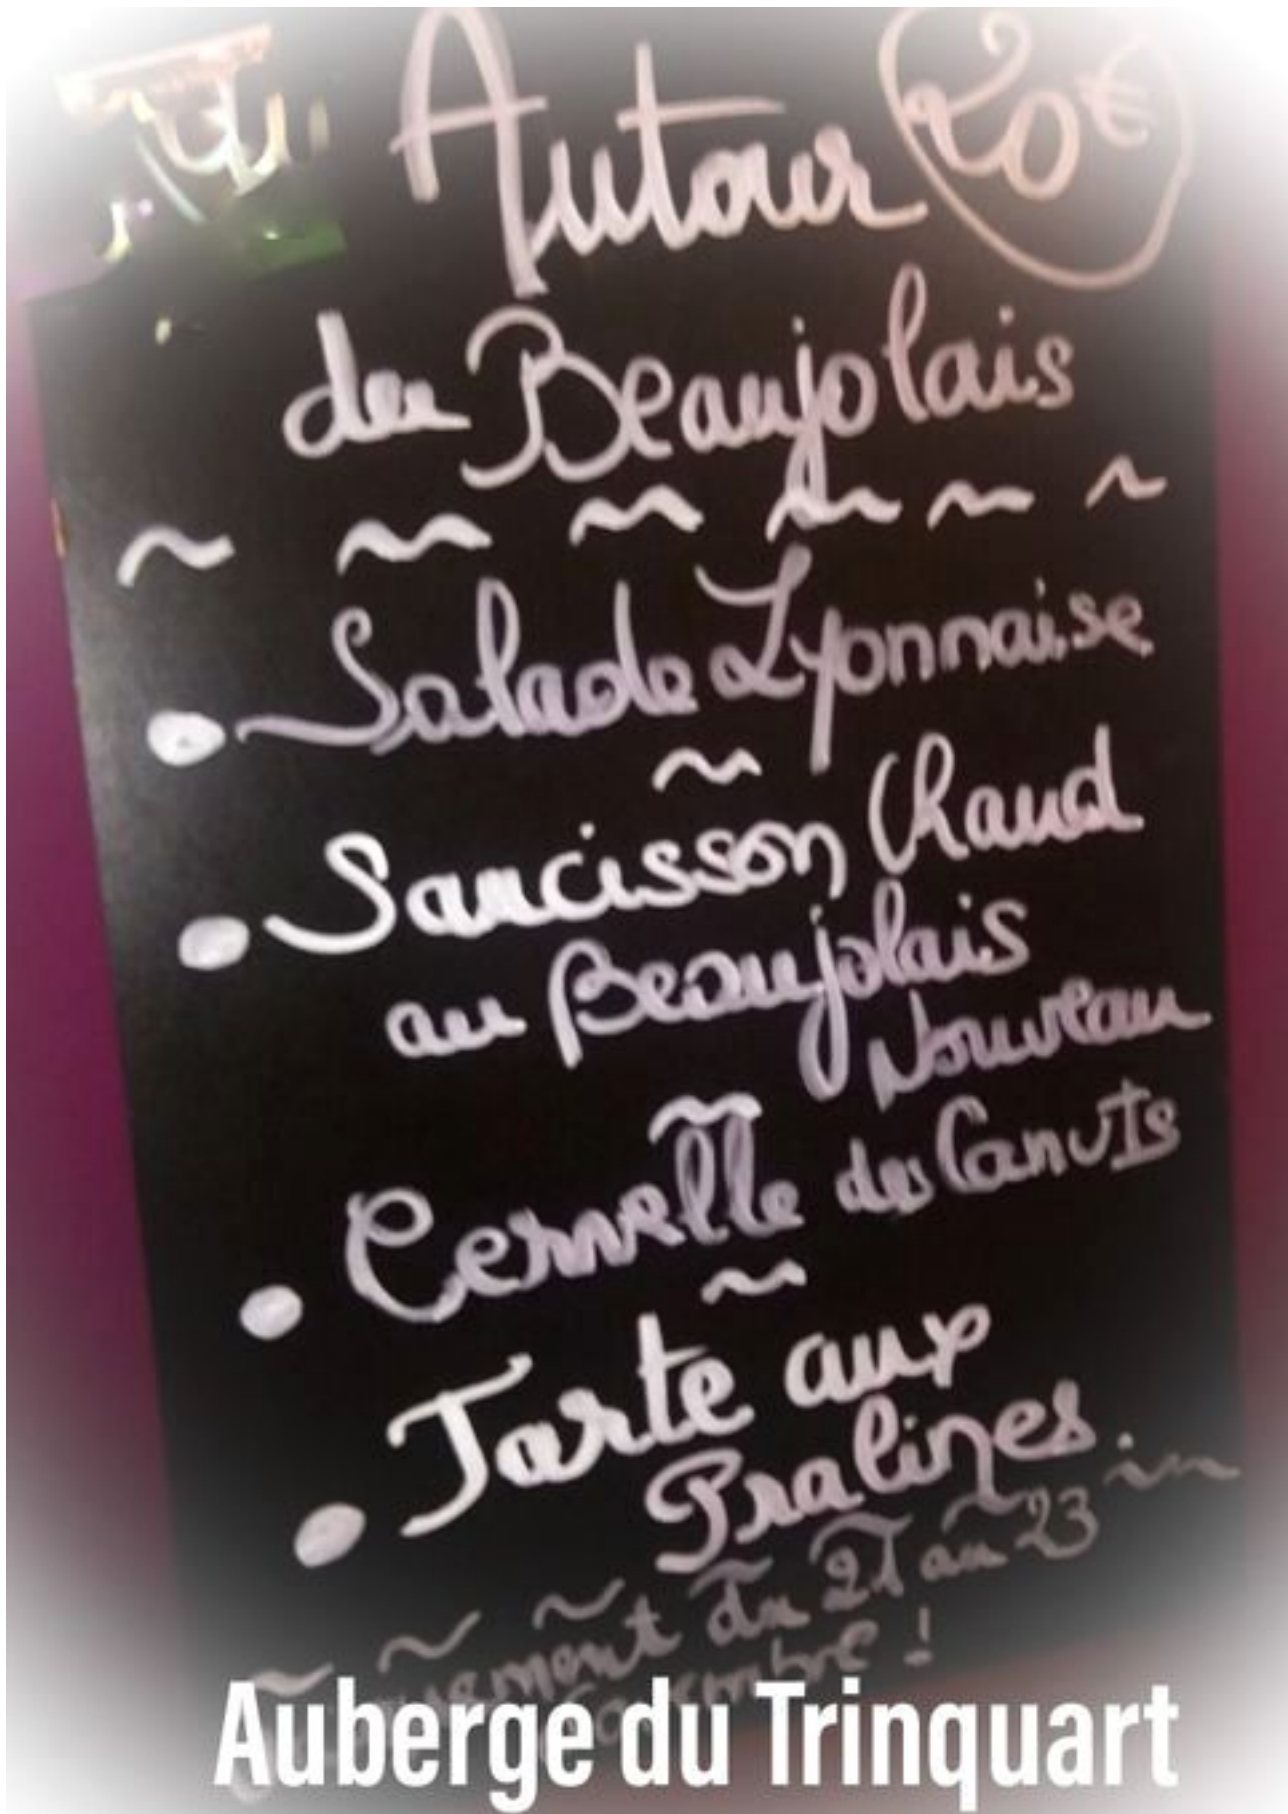 Autour 20€
du Beaujolais
~ ~ ~ ~ ~ ~
• Salade Lyonnaise
~
• Saucisson Chaud
au Beaujolais
Nouveau
~
• Cervelle des Canuts
~
• Tarte aux
Pralines
du 21 au 23
!
Auberge du Trinquart